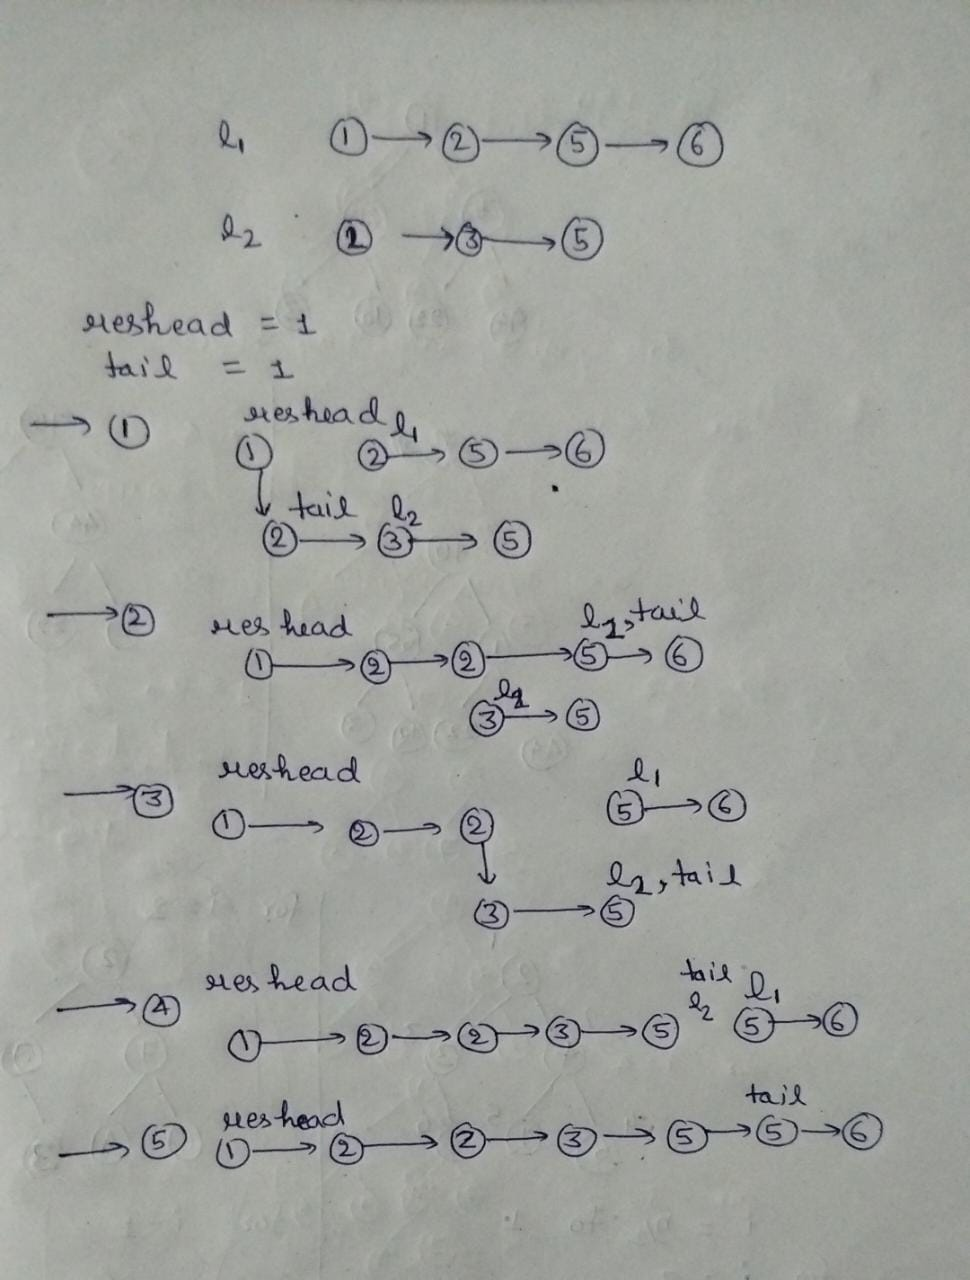 l1 1 → 2 → 5 → 6
l2 2 → 3 → 5
reshead = 1
tail = 1
→ 1 reshead l1
1 2 → 5 → 6
tail l2
2 → 3 → 5
→ 2 reshead l1, tail
1 → 2 → 2 → 5 → 6
l2
3 → 5
→ 3 reshead l1
1 → 2 → 2 5 → 6
l2, tail
3 → 5
→ 4 reshead tail l2 l1
1 → 2 → 2 → 3 → 5 5 → 6
→ 5 reshead tail
1 → 2 → 2 → 3 → 5 → 5 → 6